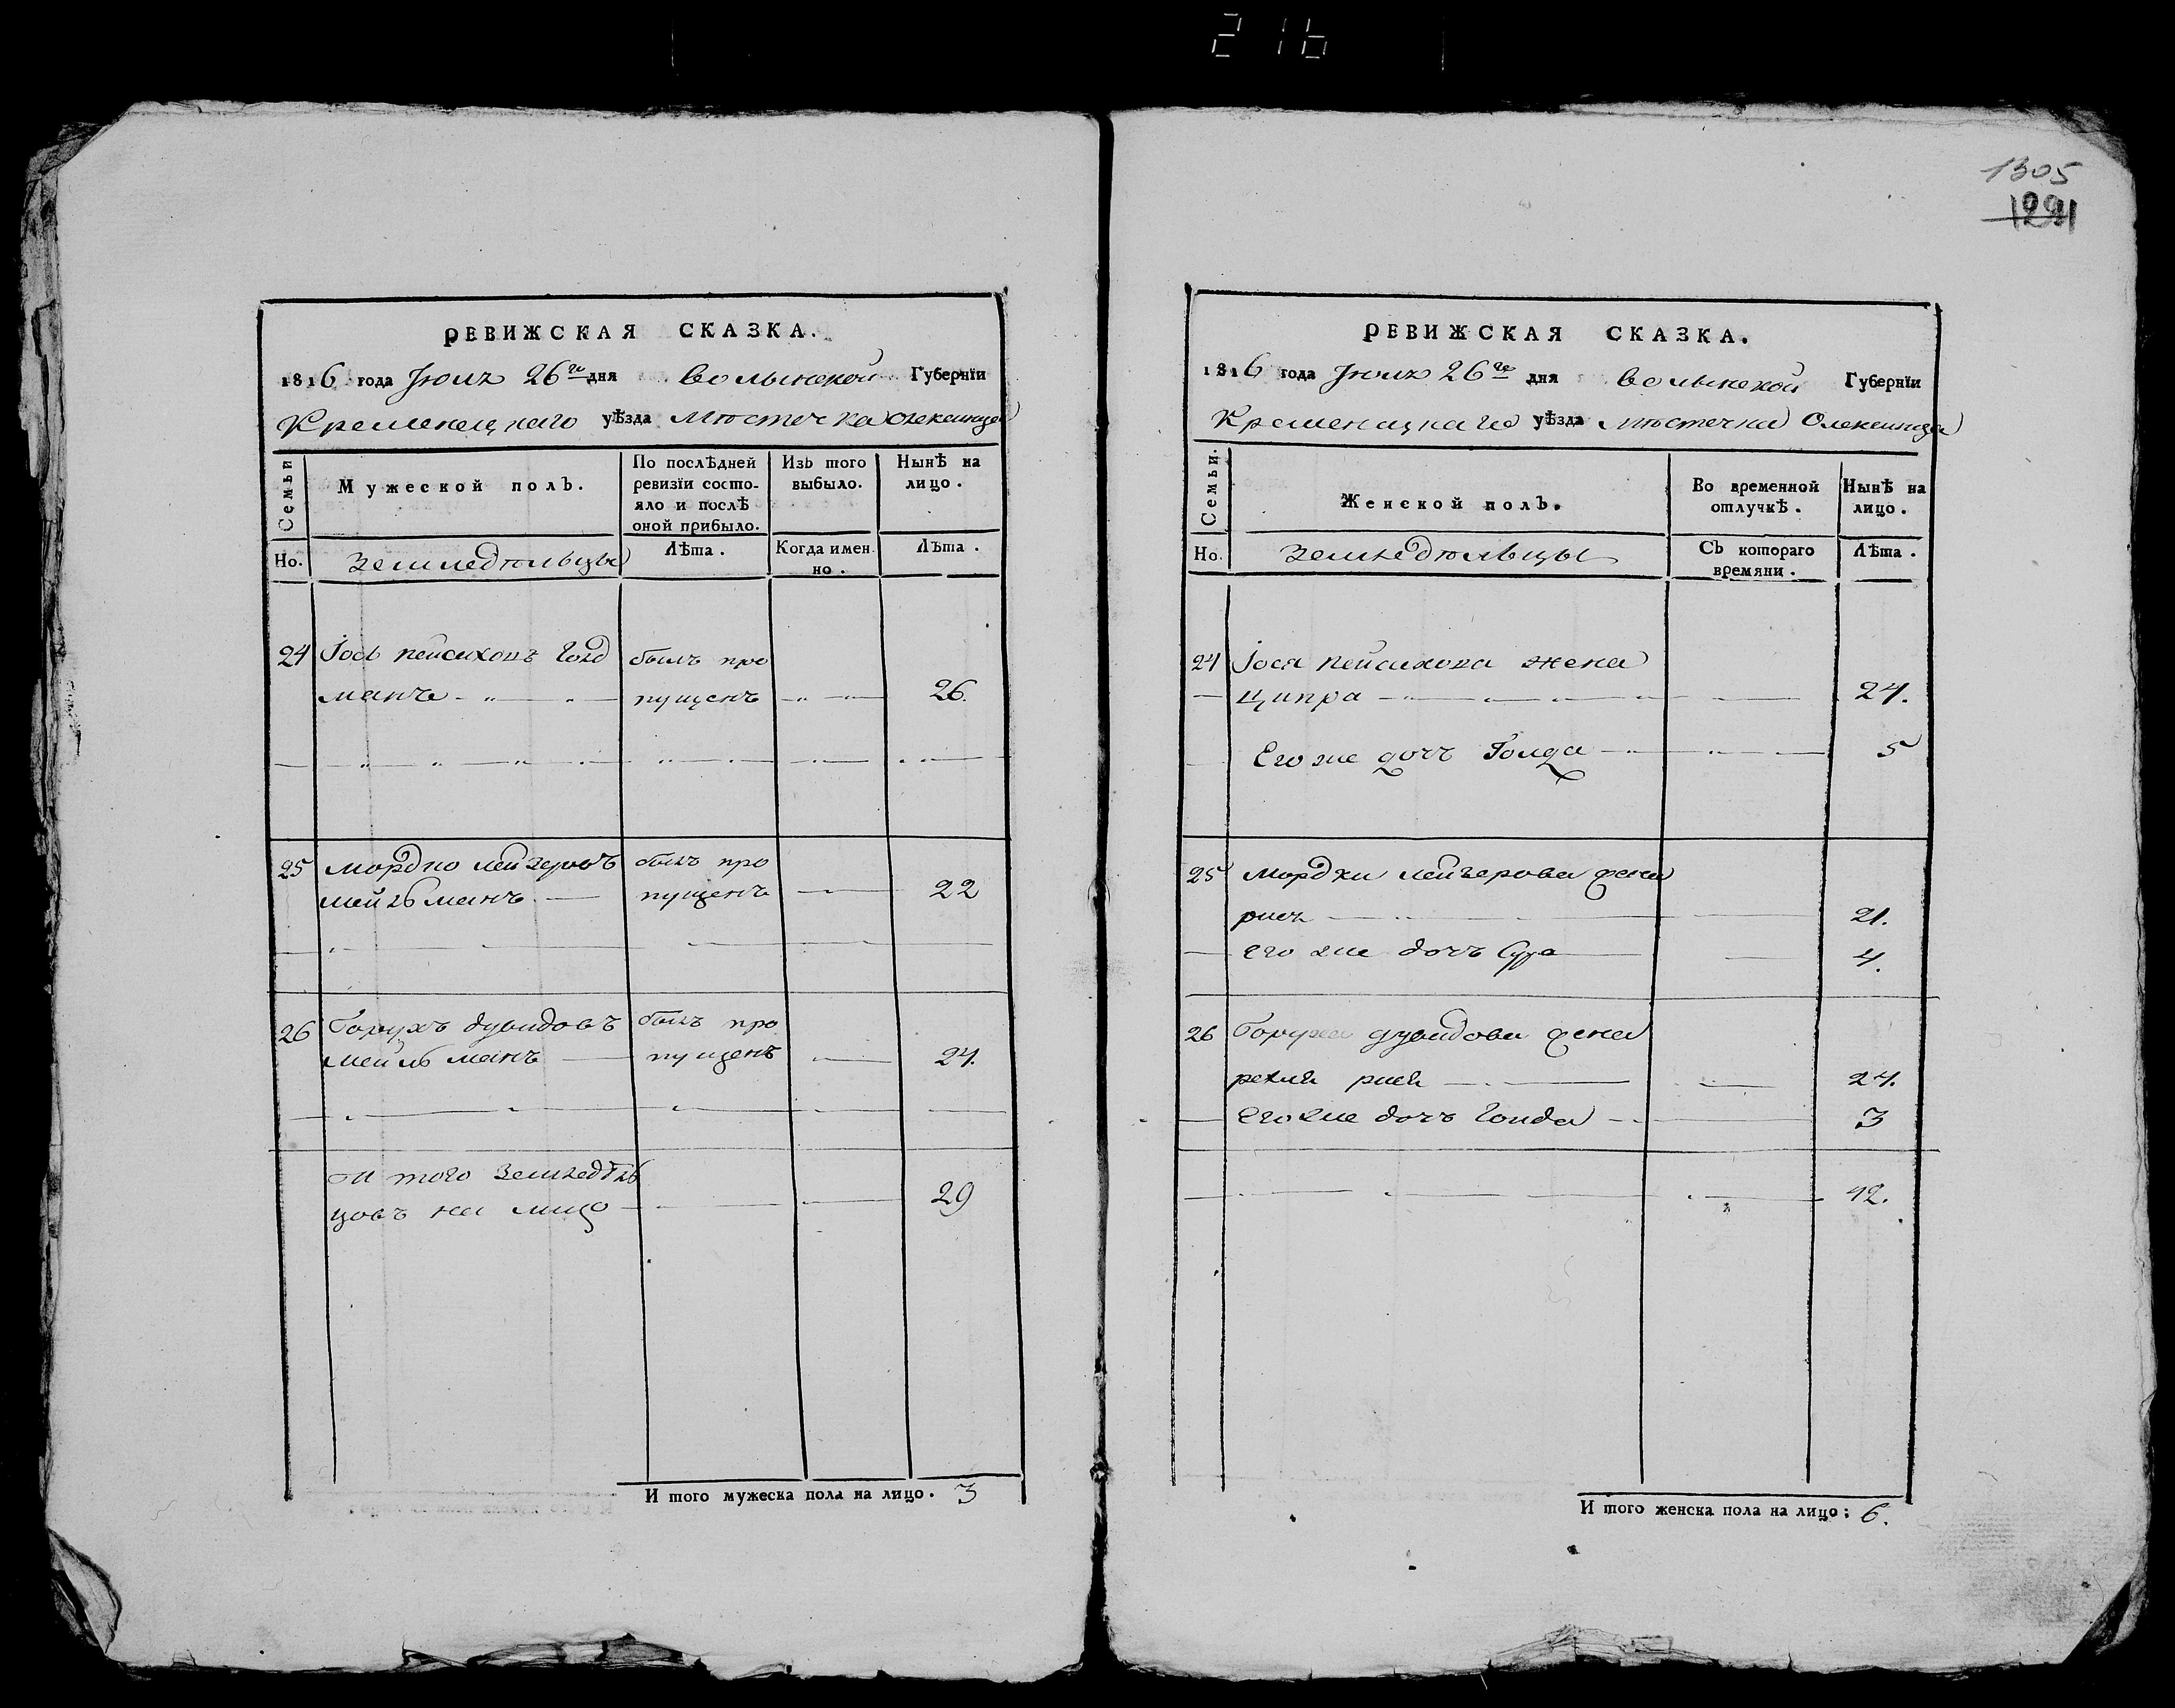 216
1305
1291
РЕВИЖСКАЯ СКАЗКА.
1816 года Июля 26го дня Волынской Губернїи
Кременецкаго уѣзда Мѣстечка Олексинца
Семьи
Мужеской полъ.
По послѣдней ревизїи состо-
яло и послѣ
оной прибыло.
Изъ того
выбыло.
Нынѣ на
лицо.
Но.
Земледѣльцы
Лѣта.
Когда имен
но.
Лѣта.
24 Іось Пейсиховъ Голд былъ про
манъ пущенъ 26.
25 Мордко Лейзеровъ былъ про
Мейльманъ пущенъ 22
26 Борухъ Дувидовъ былъ про
Мейльманъ пущенъ 24.
И того Земледѣль
цовъ на лицо 29
И того мужеска пола на лицо. 3
РЕВИЖСКАЯ СКАЗКА.
1816 года Июля 26го дня Волынской Губернїи
Кременецкаго уѣзда Мѣстечка Олексинца
Семьи.
Женской полъ.
Во временной
отлучкѣ.
Нынѣ на
лицо.
Но.
Земледѣльцы
Съ котораго
времяни.
Лѣта.
24 Іося Пейсихова жена
Ципра 24.
Его же дочь Голда 5
25 Мордки Лейзерова жена
21.
Его же дочъ Сура 4.
26 Боруха Дувидова жена
24.
Его же дочъ Голда 3
42.
И того женска пола на лицо: 6.